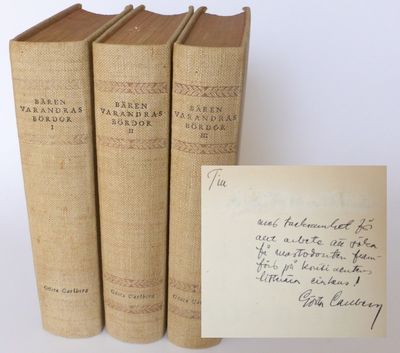 BÄREN
VARANDRAS
BÖRDOR
I
Gösta Carlberg
BÄREN
VARANDRAS
BÖRDOR
II
Gösta Carlberg
BÄREN
VARANDRAS
BÖRDOR
III
Gösta Carlberg
Till
med tacksamhet för
att arbeta att söka
få mastodonten fram-
förd på kontinentens
litterära cirkus!
Gösta Carlberg